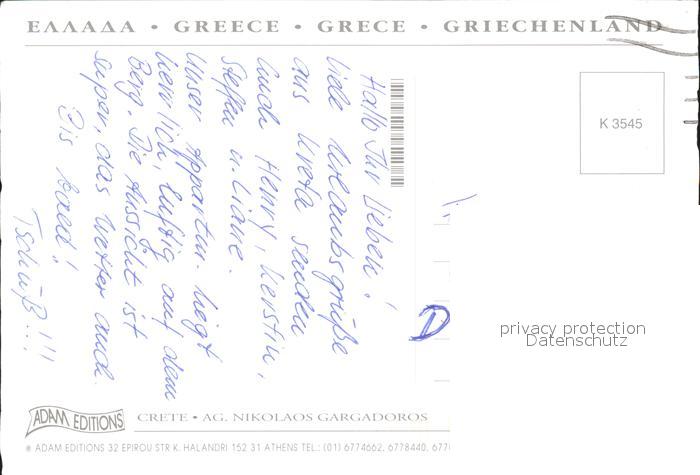 ΕΛΛΑΔΑ • GREECE • GRECE • GRIECHENLAND
K 3545
Hallo Ihr Lieben!
Viele Urlaubsgrüße
aus Kreta senden
Euch Henry, Kerstin,
Steffen u. Liane.
Unser Appartm. liegt
herrlich, luftig auf dem
Berg. Die Aussicht ist
super, das Wetter auch.
Bis bald!
Tschüß!!!
D
privacy protection
Datenschutz
ADAM EDITIONS
CRETE • AG. NIKOLAOS GARGADOROS
® ADAM EDITIONS 32 EPIROU STR K. HALANDRI 152 31 ATHENS TEL.: (01) 6774662, 6778440, 677